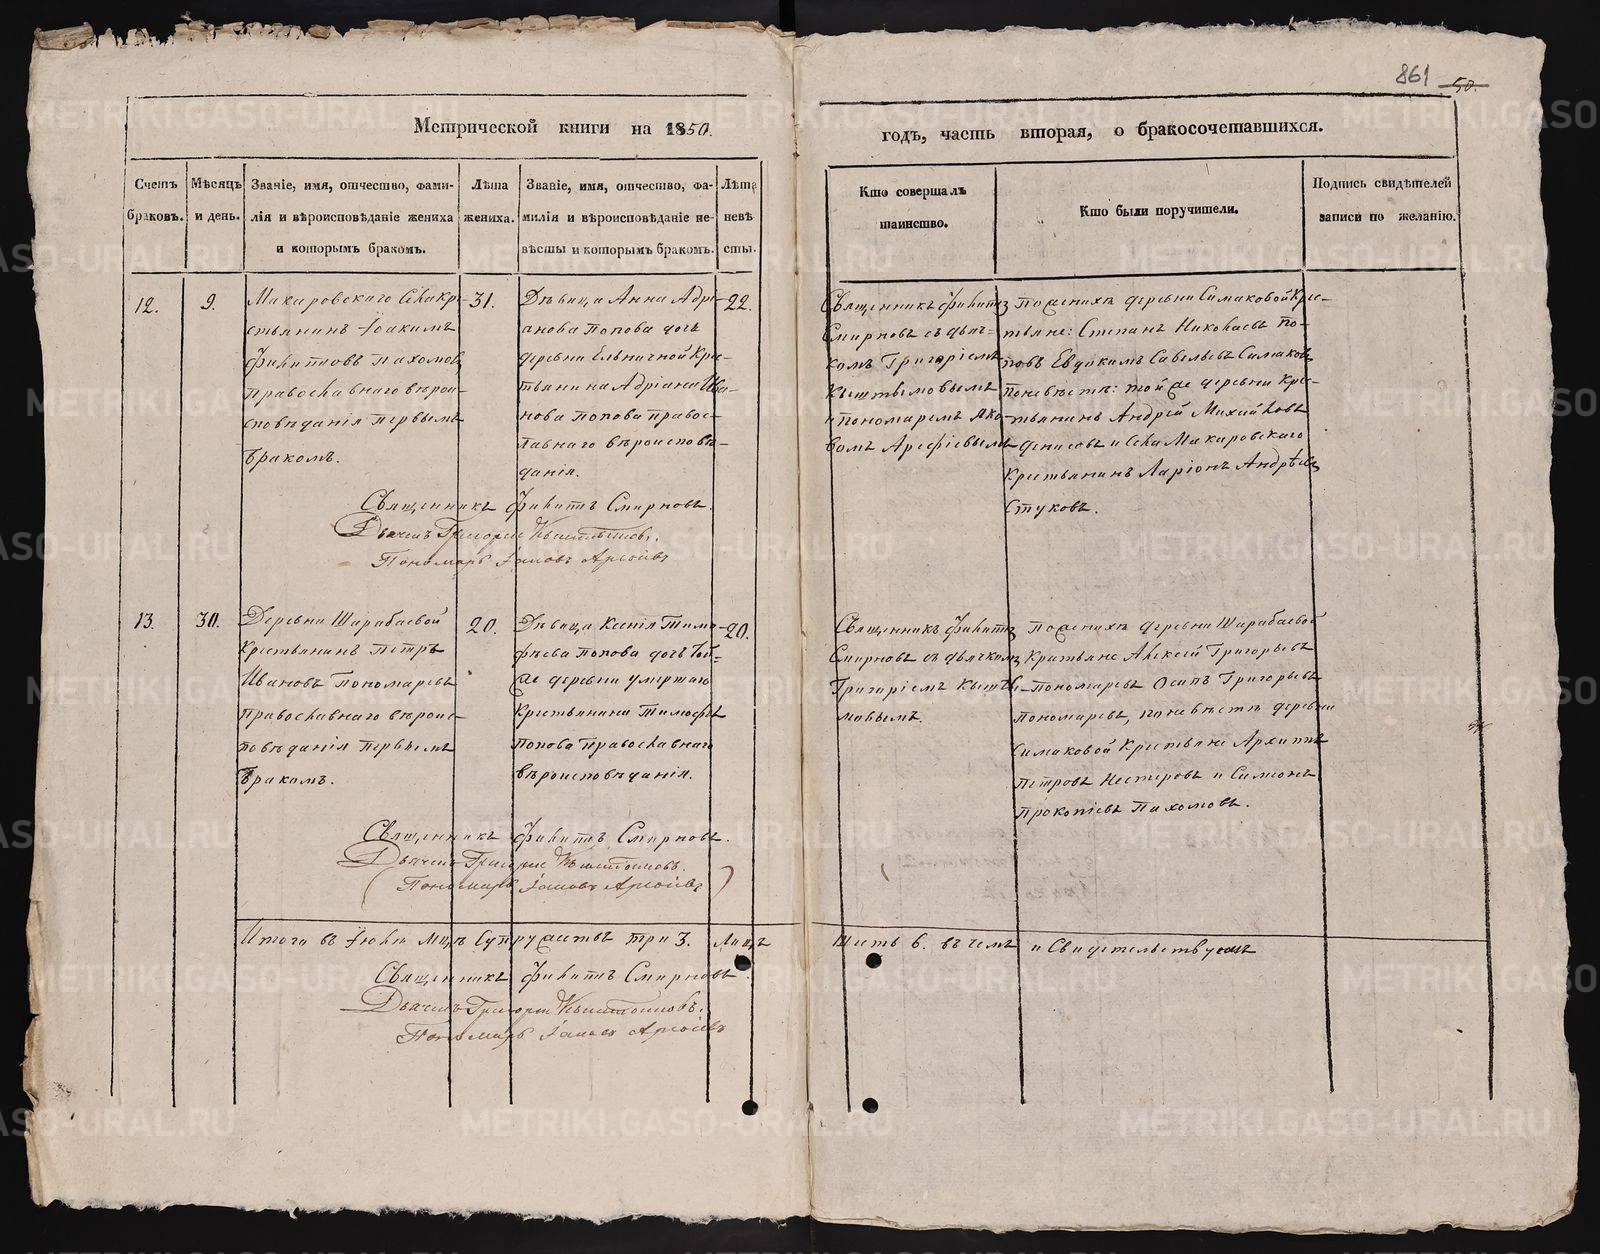 861 50.
Метрической книги на 1850.
годъ, часть вторая, о бракосочетавшихся.
Счетъ браковъ.
Мѣсяцъ и день.
Званіе, имя, отчество, фами-
лія и вѣроисповѣданіе жениха
и которымъ бракомъ.
Лѣта
жениха.
Званіе, имя, отчество, фа-
милія и вѣроисповѣданіе не-
вѣсты и которымъ бракомъ.
Лѣта
невѣ
сты.
Кто совершалъ
таинство.
Кто были поручители.
Подпись свидѣтелей
записи по желанію.
12.
9.
Макаровскаго Села кре-
стьянинъ Іоакимъ
Филипповъ Пахомовъ
православнаго вѣрои-
сповѣданія первымъ
бракомъ.
31.
Дѣвица Анна Адрі-
анова Попова дочь
деревни Ельничной Кре-
стьянина Адріана Ива-
нова Попова правос-
лавнаго вѣроисповѣ-
данія.
22.
Священникъ Филиппъ
Смирновъ съ дьяч-
комъ Григоріемъ
Кыштымовымъ
и пономаремъ Яко-
вомъ Арефіевымъ
По женихѣ деревни Симаковой Кре-
стьяне: Степанъ Николаевъ По-
повъ Евдокимъ Савельевъ Симаковъ
по невѣстѣ: той же деревни Кре-
стьянинъ Андрей Михайловъ
Денисовъ и Села Макаровскаго
Крестьянинъ Ларіонъ Андрѣевъ
Стуковъ.
Священникъ Филиппъ Смирновъ.
Дьячекъ Григорій Кыштымовъ.
Пономарь Іаковъ Арефіевъ
13.
30.
Деревни Шарабаевой
Крестьянинъ Петръ
Ивановъ Пономаревъ
православнаго вѣроис-
повѣданія первымъ
бракомъ.
20.
Дѣвица Ксенія Тимо-
фѣева Попова дочь той-
же деревни умершаго
Крестьянина Тимофѣя
Попова православнаго
вѣроисповѣданія.
20.
Священникъ Филиппъ
Смирновъ съ дьячкомъ
Григоріемъ Кышты-
мовымъ.
По женихѣ деревни Шарабаевой
Крестьяне Алексѣй Григорьевъ
Пономаревъ Осипъ Григорьевъ
Пономаревъ, по невѣстѣ деревни
Симаковой Крестьяне Архипъ
Петровъ Нестеровъ и Симеонъ
Прокопіевъ Пахомовъ.
Священникъ Филиппъ Смирновъ.
Дьячекъ Григорій Кыштымовъ.
Пономарь Іаковъ Арефіевъ
Итого въ Іюлѣ М-цѣ Супружествъ три 3. Лицъ Шесть 6. въ чемъ и Свидетельствуемъ
Священникъ Филиппъ Смирновъ.
Дьячекъ Григорій Кыштымовъ.
Пономарь Іаковъ Арефіевъ
METRIKI.GASO-URAL.RU